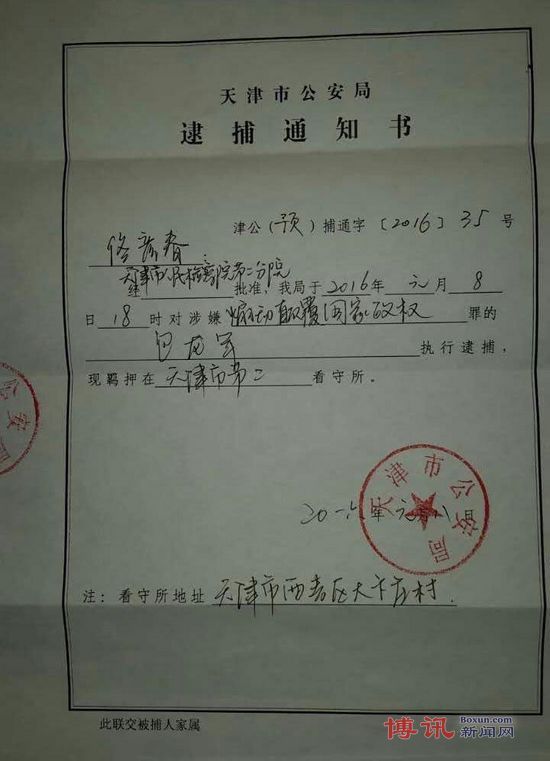 天津市公安局
逮捕通知书
津公（预）捕通字〔2016〕35号
佟彦春：
经天津市人民检察院第二分院批准，我局于2016年元月8
日18时对涉嫌煽动颠覆国家政权罪的
包龙军执行逮捕，
现羁押在天津市第二看守所。
天津市公安局
二〇一六年元月八日
注：看守所地址天津市西青区大卞庄村.
此联交被捕人家属
公安局
博讯 Boxun.com 新闻网